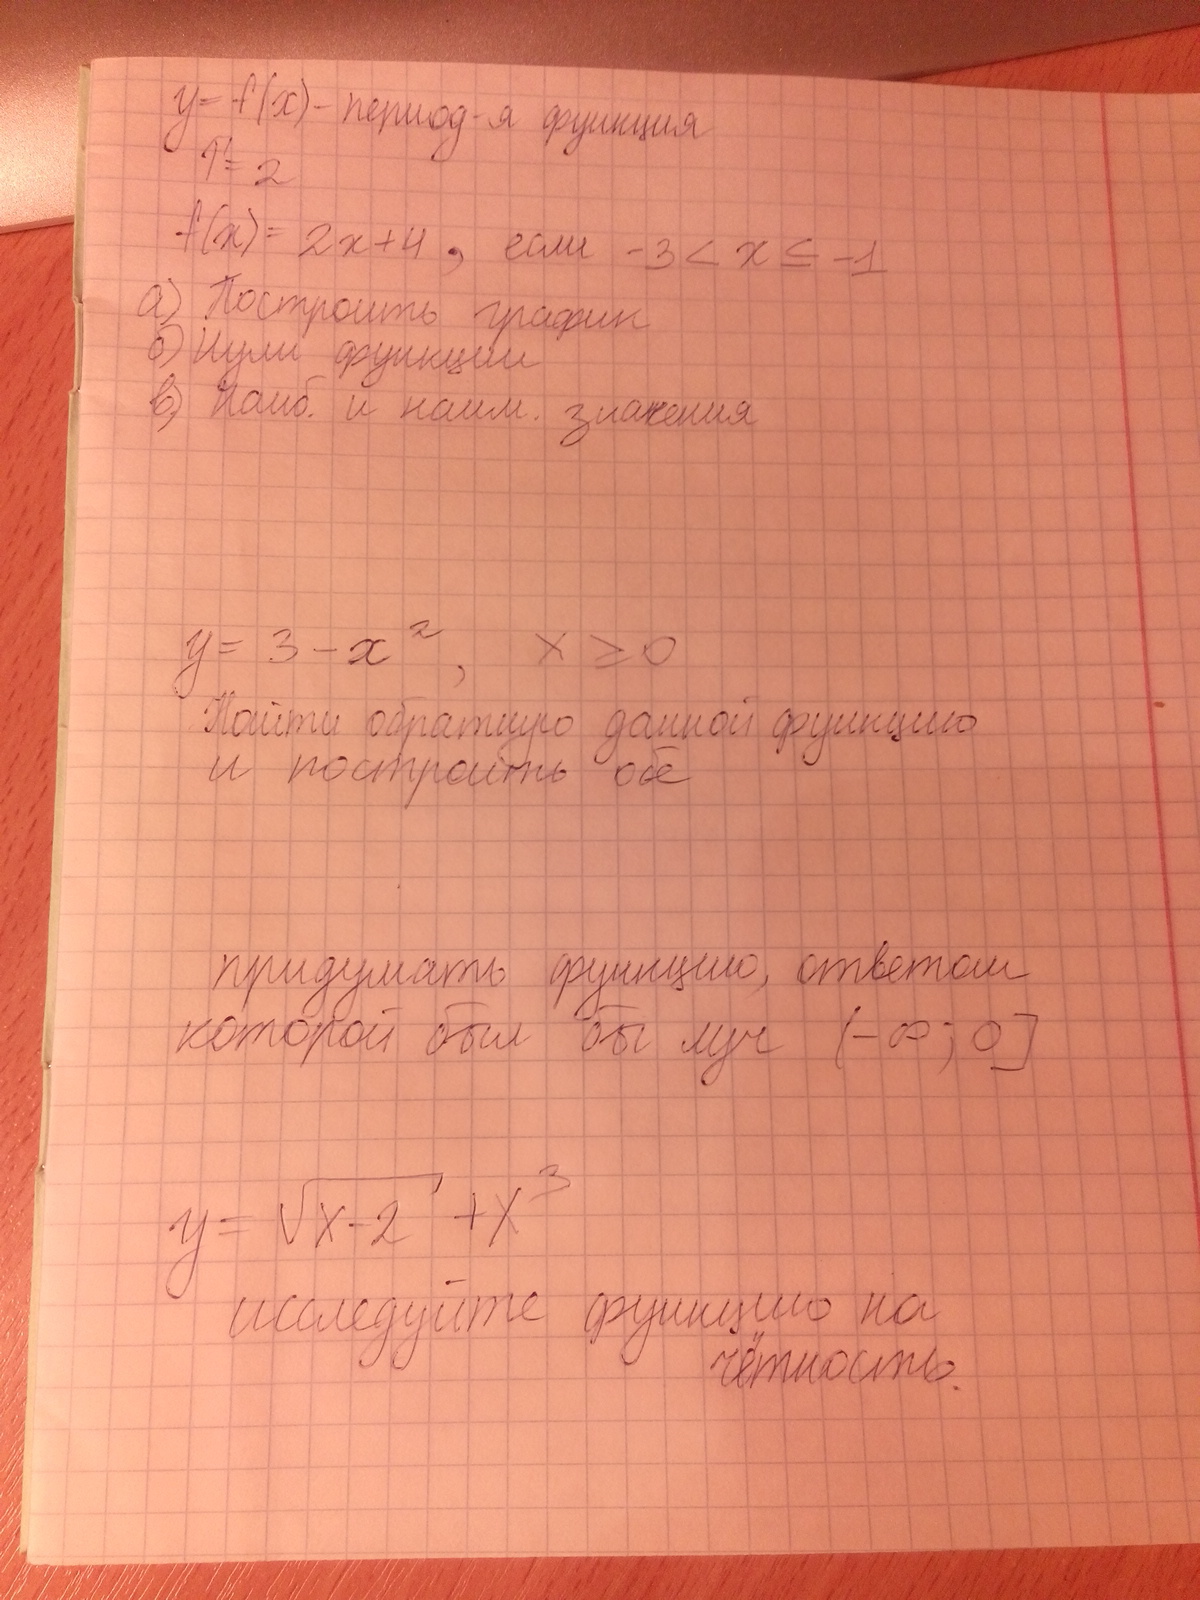 y = f(x) - период-я функция
T = 2
f(x) = 2x+4, если -3 < x ≤ -1
а) Построить график
б) Нули функции
в) Наиб. и наим. значения
y = 3 - x², x ≥ 0
Найти обратную данной функцию
и построить обе
придумать функцию, ответом
которой был бы луч (-∞; 0]
y = √(x-2) + x³
исследуйте функцию на
чётность.